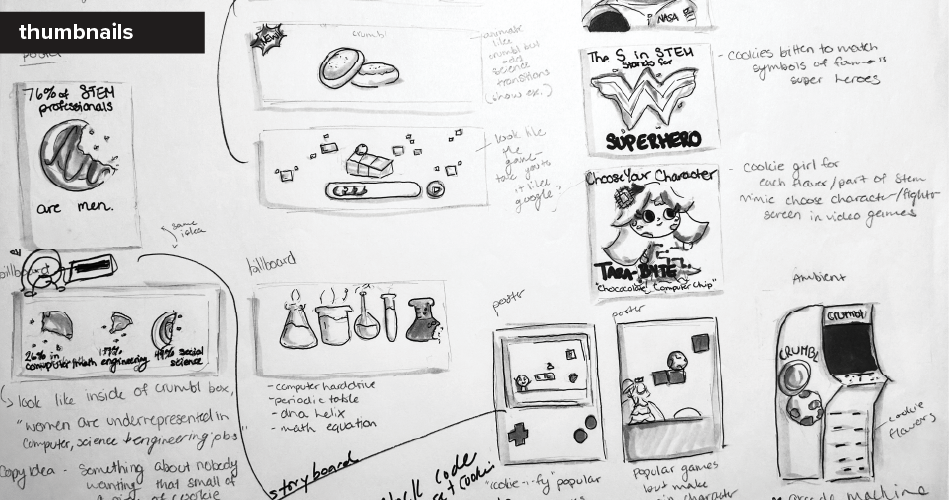 thumbnails
76% of STEM
professionals
are men.
same
idea
billboard
26% in
engineering
49% social
science
look like inside of crumbl box,
"women are underrepresented in
computer, science & engineering jobs"
Copy Idea - Something about nobody
wanting that small of
crumbl
animate
like
crumbl but
science
transitions
look like
the
game-
like
google
billboard
- computer harddrive
- periodic table
- dna helix
- math equation
storyboard
code
poster
"cookie-i-fy" popular
poster
popular games
but make
character
NASA
The S in STEM
stands for
SUPERHERO
- cookies bitten to match
symbols of famous
super heroes
Choose Your Character
TARA-BYTE
"Chocolate Computer Chip"
- cookie girl for
each flavor/part of stem
mimic choose character/fight
screen in video games
Ambient
crumbl
CRUMBL
cookie
flavors
machine